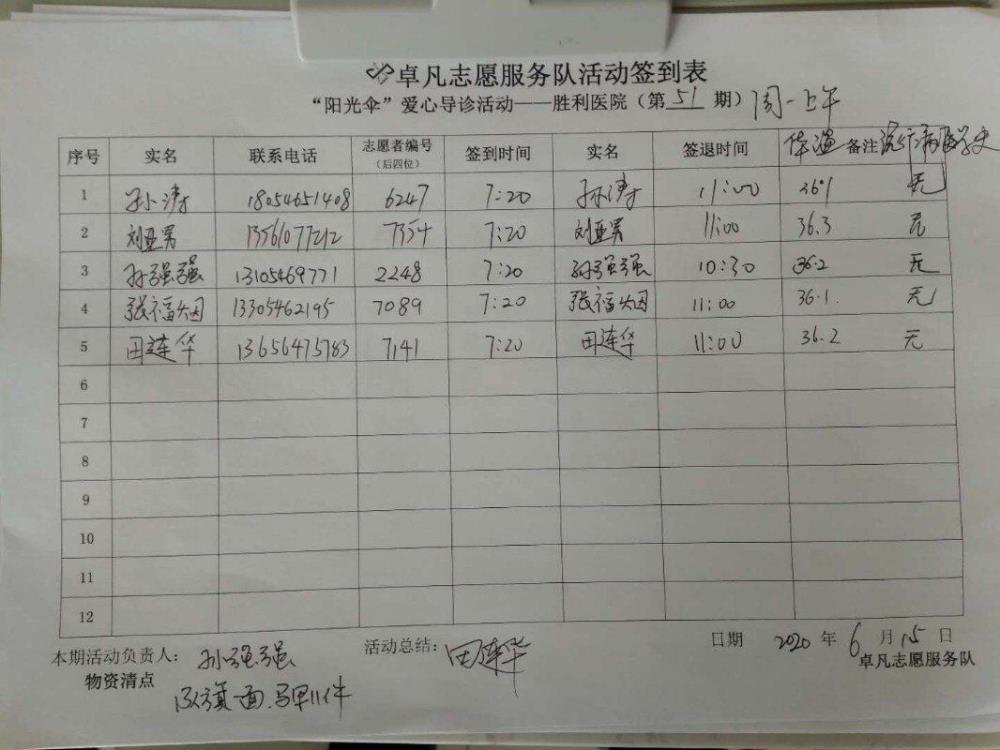 卓凡志愿服务队活动签到表
“阳光伞”爱心导诊活动——胜利医院（第 51 期）周一上午
序号 实名 联系电话 志愿者编号（后四位） 签到时间 实名 签退时间 体温 备注 流行病学史
1 孙涛 18054651408 6247 7:20 孙涛 11:00 36.1 无
2 刘亚男 13561077212 7554 7:20 刘亚男 11:00 36.3 无
3 孙强强 13105469771 2248 7:20 孙强强 10:30 36.2 无
4 张福烟 13305462195 7089 7:20 张福烟 11:00 36.1. 无
5 田连华 13656475783 7141 7:20 田连华 11:00 36.2 无
6
7
8
9
10
11
12
本期活动负责人： 孙强强 活动总结： 田连华 日期 2020 年 6 月 15 日
物资清点 卓凡志愿服务队
队旗一面